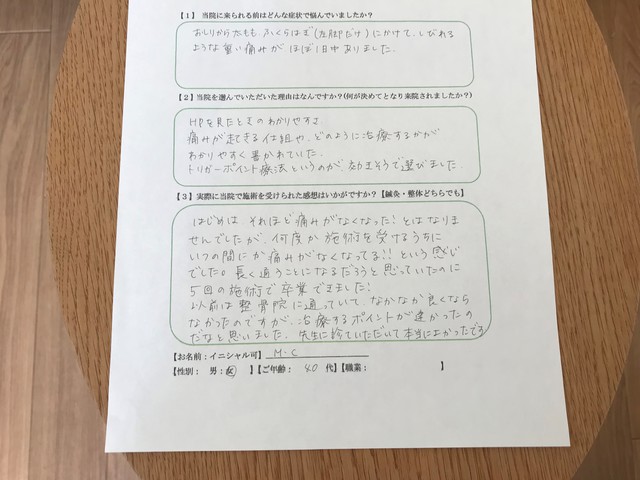 【１】 当院に来られる前はどんな症状で悩んでいましたか？
おしりから太もも、ふくらはぎ（左脚だけ）にかけて、しびれる
ような重い痛みが ほぼ1日中ありました。
【２】当院を選んでいただいた理由はなんですか？(何が決めてとなり来院されましたか？)
HPを見たときのわかりやすさ
痛みが起てきる仕組や、どのように治療するかが
わかりやすく書かれていた。
トリガーポイント療法というのが、効きそうで選びました。
【３】実際に当院で施術を受けられた感想はいかがですか？【鍼灸・整体どちらでも】
はじめは それほど痛みがなくなった！とはなりま
せんでしたが、何度か施術を受けるうちに
いつの間にか痛みがなくなってる!! という感じ
でした。長く通うことになるだろうと思っていたのに
5回の施術で卒業できました！
以前は整骨院に通っていて、なかなか良くなら
なかったのですが、治療するポイントが違かったの
だなと思いました。先生に診ていただいて本当によかったです
【お名前：イニシャル可】 M・C
【性別： 男：女 】【ご年齢： 40 代】【職業： 】